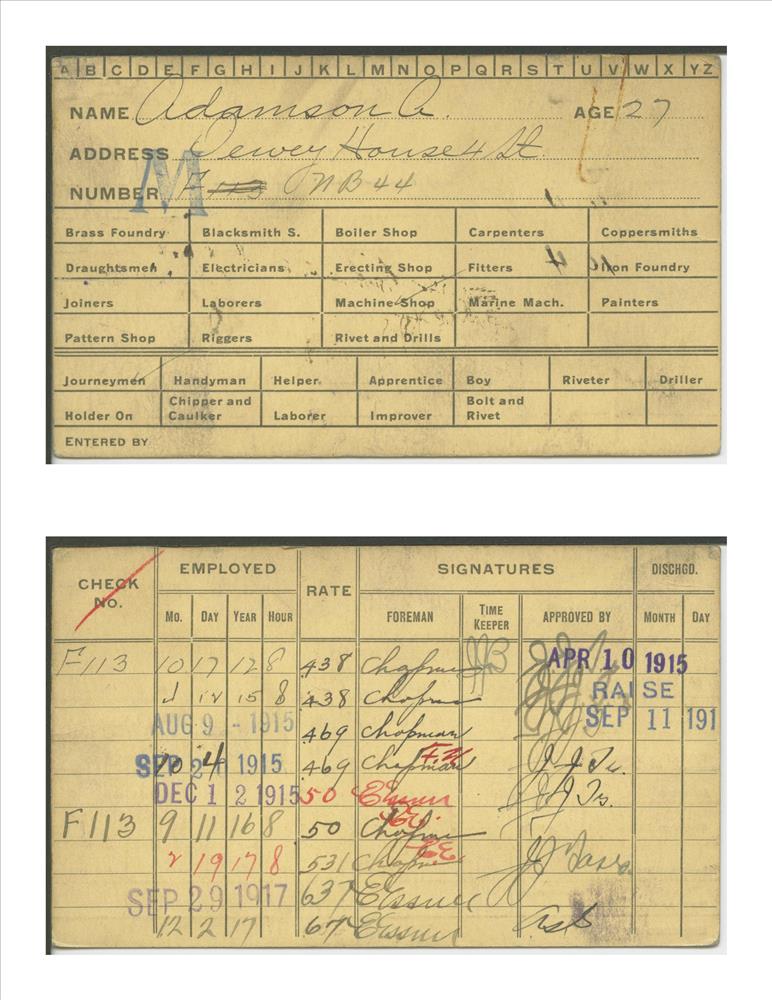 A B C D E F G H I J K L M N O P Q R S T U V W X Y Z
NAME Adamson A. AGE 27
ADDRESS Dewey House 4 St.
NUMBER F 113 NB 44
M
Brass Foundry Blacksmith S. Boiler Shop Carpenters Coppersmiths
Draughtsmen Electricians Erecting Shop Fitters Iron Foundry
Joiners Laborers Machine Shop Marine Mach. Painters
Pattern Shop Riggers Rivet and Drills
Journeymen Handyman Helper Apprentice Boy Riveter Driller
Holder On Chipper and Caulker Laborer Improver Bolt and Rivet
ENTERED BY
CHECK No. EMPLOYED RATE SIGNATURES DISCHGD.
Mo. DAY YEAR HOUR FOREMAN TIME KEEPER APPROVED BY MONTH DAY
F113 10 17 12 8 438 Chapman APR 10 1915
15 8 438 Chapman RAISE
AUG 9 - 1915 469 Chapman SEP 11 191
SEP 24 1915 469 Chapman
DEC 12 1915 50
F113 9 11 16 8 50 Chapman
2 19 17 8 531 Chapman
SEP 29 1917 637
12 2 17 67